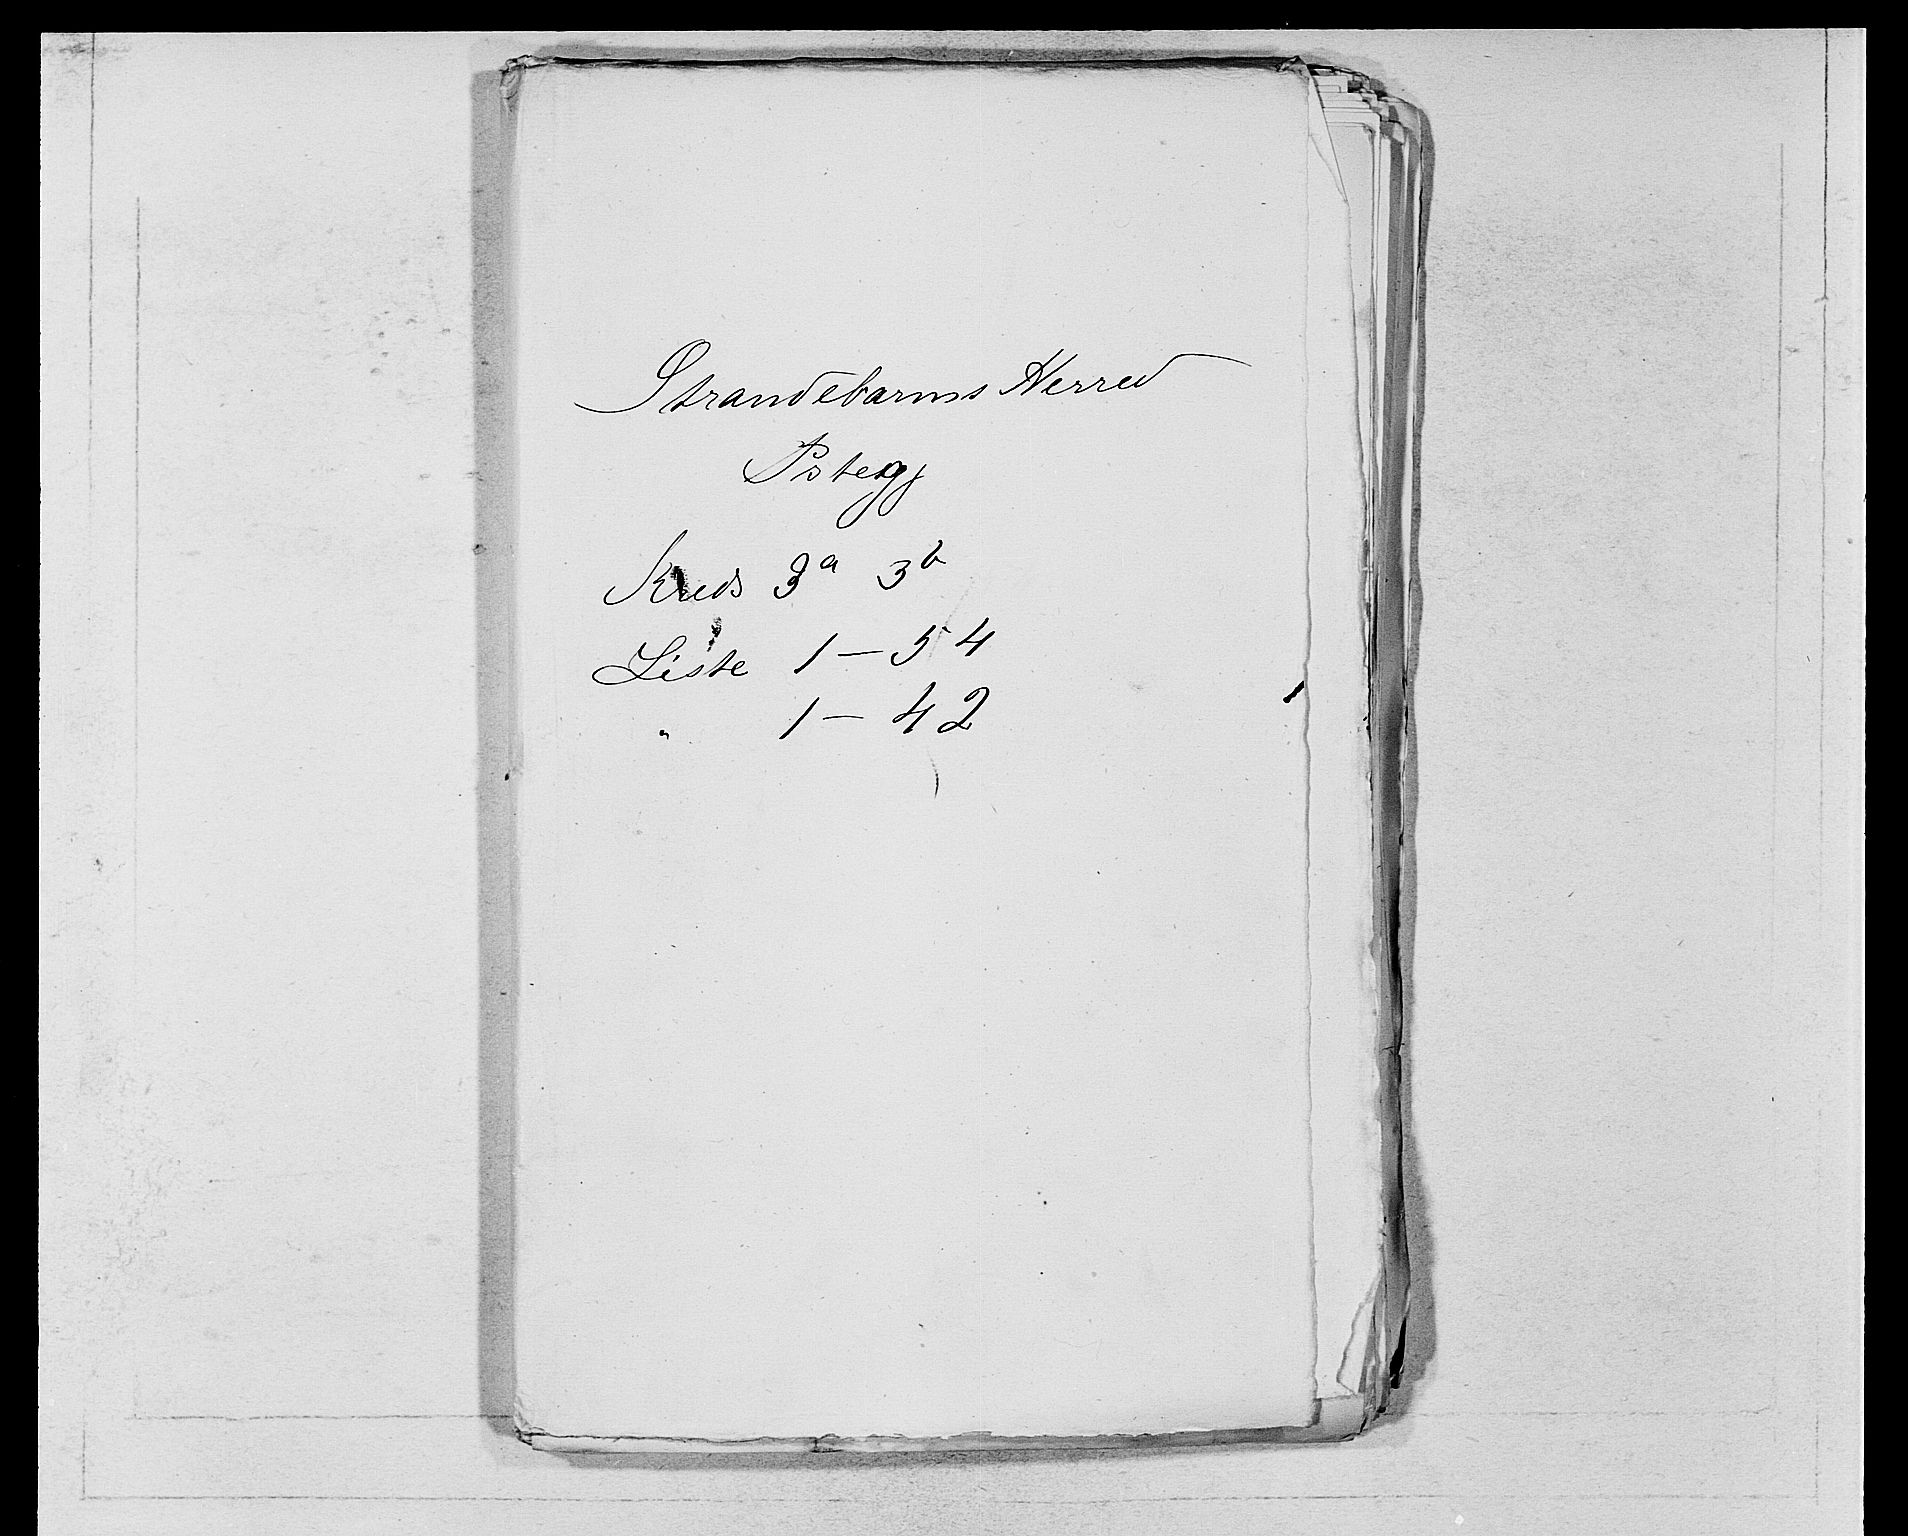 Strandebarms Herred
Pstegj
Kreds 3a 3b
Liste 1 — 54
" 1 — 42